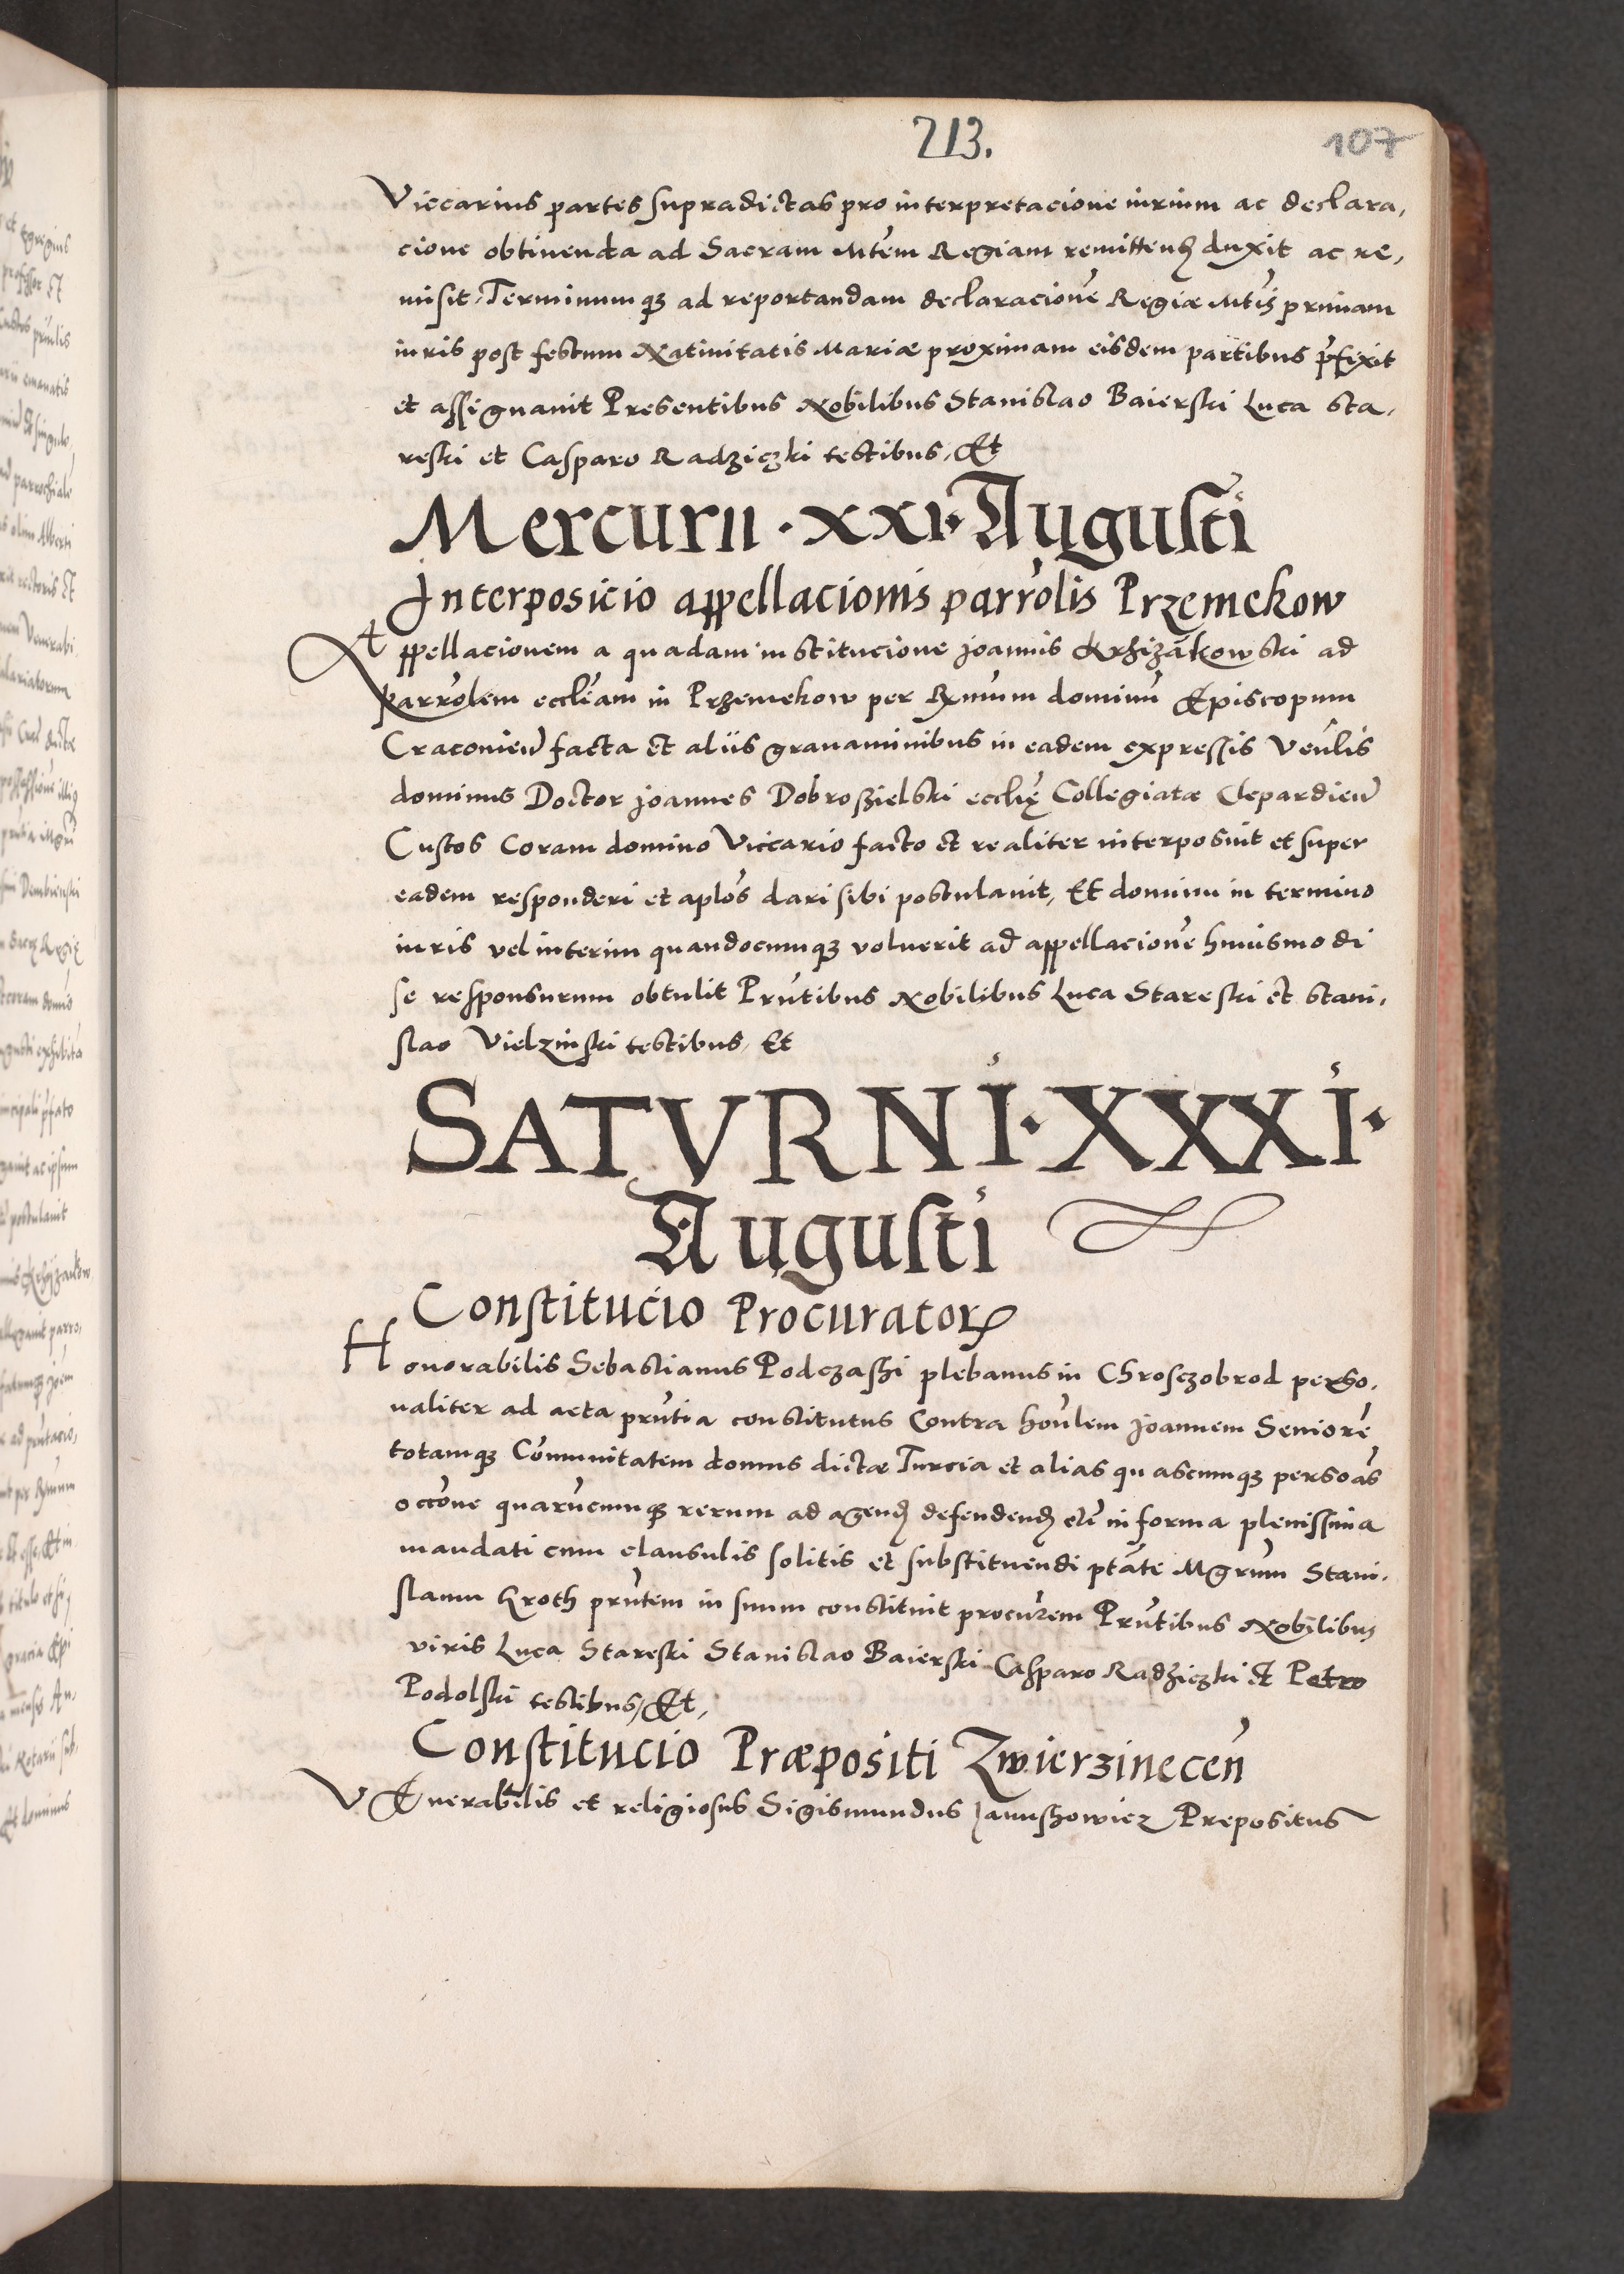 213.
107
Viccarius partes supradictas pro interpretacione iurium ac declara,
cione obtinenda ad Sacram Mtem Regiam remittend duxit ac re,
misit, Terminumq3 ad reportandam declaracionē Regiæ Mtis primam
iuris post festum Natiuitatis Mariæ proximam eisdem partibus p̄fixit
et assignauit Presentibus Nobilibus Stanislao Baierski Luca Sta,
reski et Casparo Radziczki testibus, Et
Mercurii · XXI · Augusti
Interposicio appellacionis parrolis Przemekow
Appellacionem a quadam institucione Joannis Krzizākowski ad
parrolem eccleam in Przemekow per Rmum dominū Episcopum
Cracouien facta et aliis grauaminibus in eadem expressis Venlis
dominus Doctor Joannes Dobroszielski ecclię Collegiatæ Clepardien
Custos Coram domino Viccario facto et realiter interposuit et super
eadem responderi et aplos dari sibi postulauit, Et dominu in termino
iuris vel interim quandocumq3 voluerit ad appellacionē huiusmodi
se responsurum obtulit Prntibus Nobilibus Luca Stareski et Stani,
slao Vielzinski testibus, Et
SATVRNI · XXXI ·
Augusti
Constitucio Procurator
Honorabilis Sebastianus Podczaski plebanus in Chrosczobrod perso,
naliter ad acta prntia constitutus Contra honlem Joannem Seniorē
totamq3 Cōmunitatem domus dictæ Turcia et alias quascumq3 persoas
occone quarūcumq3 rerum ad agend defendend etc in forma plenissima
mandati cum clausulis solitis et substituendi ptate Mgrum Stani,
slaum Kroth prntem in suum constituit procurem Prntibus Nobilibus
viris Luca Stareski Stanislao Baierski Casparo Radziczki et Petro
Podolski testibus, Et,
Constitucio Præpositi Zwierzinecen
VEnerabilis et religiosus Sigismundus Januszowicz Prepositus